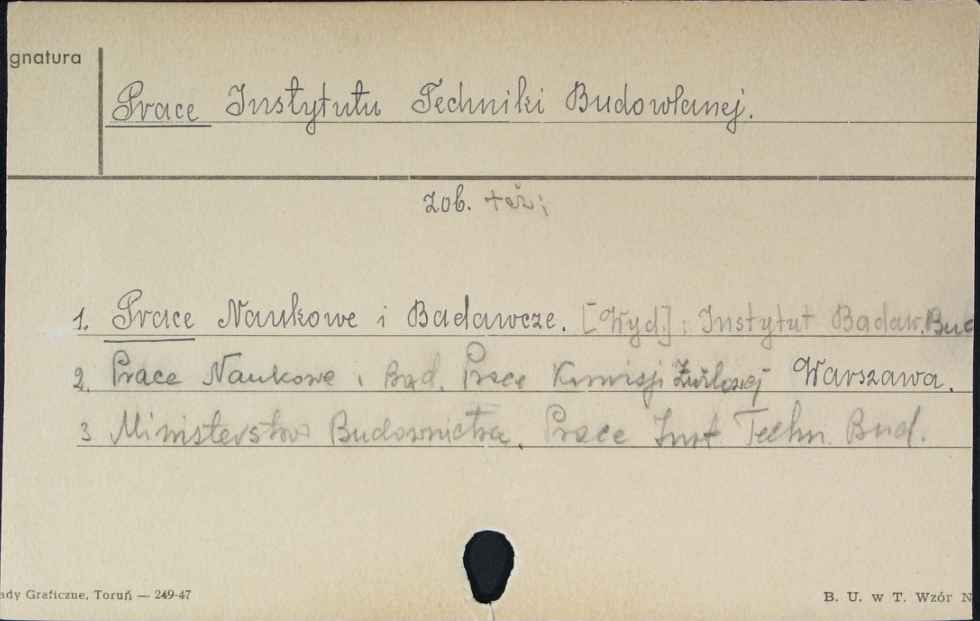 gnatura
Prace Instytutu Techniki Budowlanej.
zob. też:
1. Prace Naukowe i Badawcze. [Wyd]: Instytut Badaw. Bud
2. Prace Naukowe i Bad. Prace Komisji Żużlowej Warszawa.
3 Ministerstwo Budownictwa. Prace Inst Techn. Bud.
ady Graficzne, Toruń — 249-47
B. U. w T. Wzór N